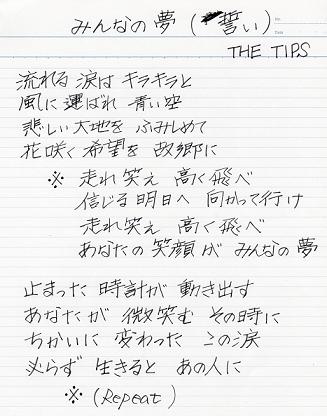 みんなの夢（誓い）
THE TIPS
No.
Date
流れる涙は キラキラと
風に運ばれ 青い空
悲しい大地を ふみしめて
花咲く希望を 故郷に
※ 走れ笑え 高く飛べ
信じる明日へ 向かって行け
走れ笑え 高く飛べ
あなたの笑顔が みんなの夢
止まった 時計が 動き出す
あなたが 微笑む その時に
ちかいに 変わった この涙
必らず 生きると あの人に
※（Repeat）